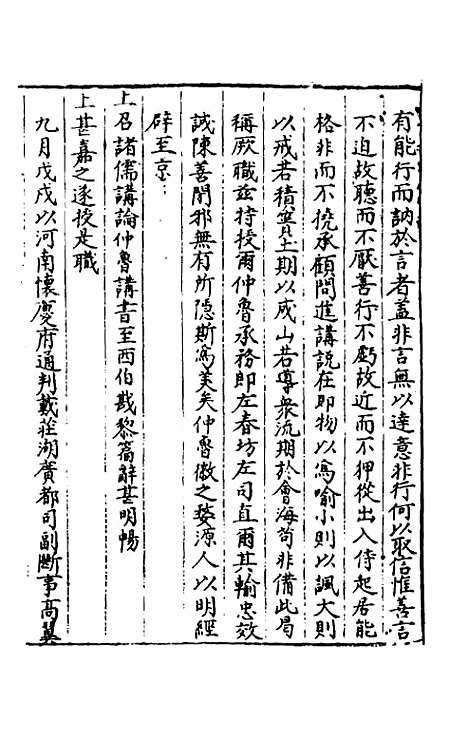 有能行而訥於言者蓋非言無以達意非行何以取信惟善言
不迫故聽而不厭善行不虧故近而不押從出入侍起居能
格非而不撓承顧問進講說在即物以寓喻小則以諷大則
以戒若積簣土期以成山若導衆流期於會海苟非備此局
稱厥職茲特授爾仲魯承務郎左春坊左司直爾其輸忠效
誠陳善閉邪無有所隱斯爲美矣仲魯徽之婺源人以明經
辟至京
上召諸儒講論仲魯講書至西伯戡黎篇辭甚明暢
上甚嘉之遂授是職
九月戊戌以河南懷慶府通判戴莊湖廣都司副斷事高翼